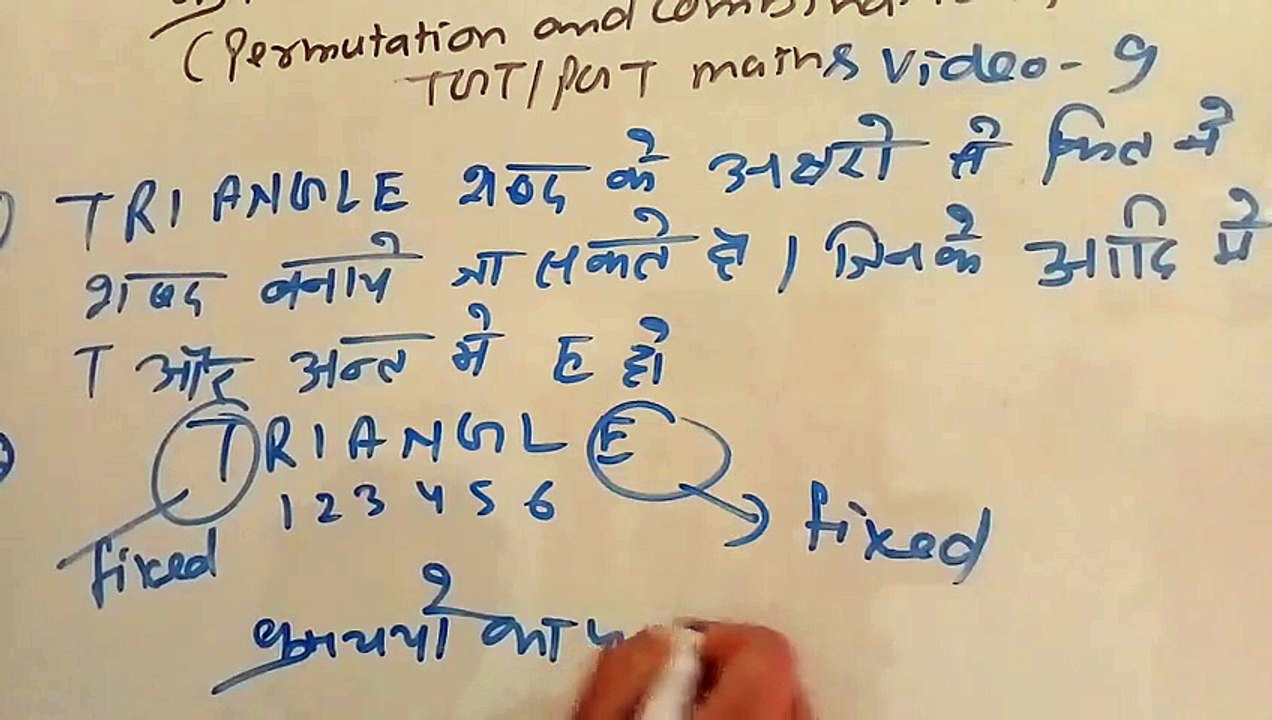 (Permutation and Combina
TGT/PGT maths Video - 9
TRIANGLE शब्द के अक्षरो से कितने
शब्द बनाये जा सकते है । जिनके आदि मे
T और अन्त मे E हो
TRIANGLE
1 2 3 4 5 6
fixed
fixed
क्रमचयो का